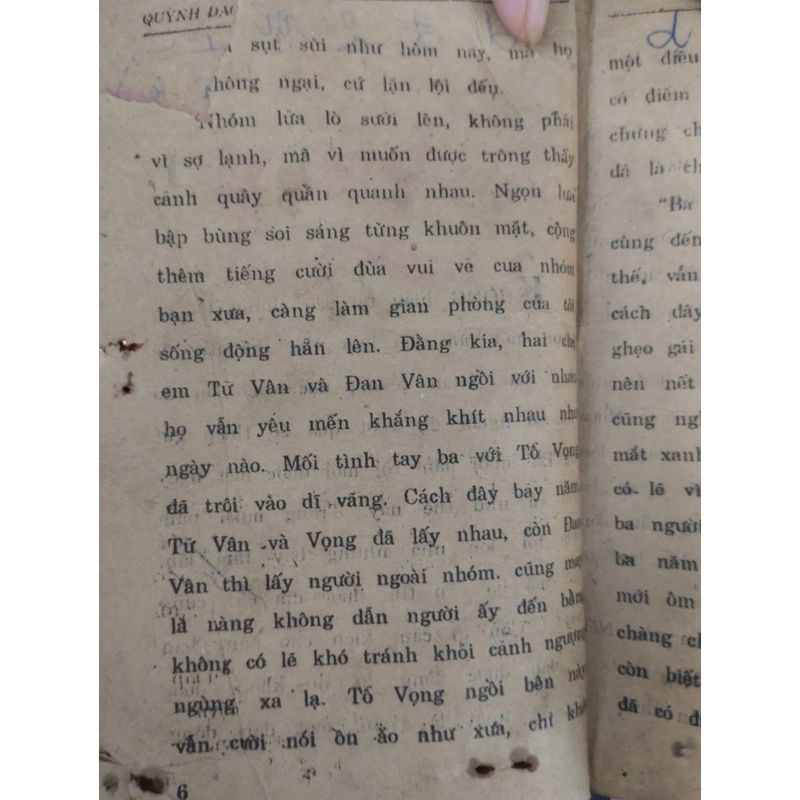 QUỲNH DAO
sụt sùi như hôm nay, mà họ
không ngại, cứ lặn lội đến.
Nhóm lửa lò sưởi lên, không phải
vì sợ lạnh, mà vì muốn được trông thấy
cảnh quây quần quanh nhau. Ngọn lửa
bập bùng soi sáng từng khuôn mặt, cộng
thêm tiếng cười đùa vui vẻ của nhóm
bạn xưa, càng làm gian phòng của tôi
sống động hẳn lên. Đằng kia, hai chị
em Tử Vân và Đan Vân ngồi với nhau
họ vẫn yêu mến khắng khít nhau như
ngày nào. Mối tình tay ba với Tổ Vọng
đã trôi vào dĩ vãng. Cách đây bảy năm
Tử Vân và Vọng đã lấy nhau, còn Đan
Vân thì lấy người ngoài nhóm. cũng may
là nàng không dẫn người ấy đến bằng
không có lẽ khó tránh khỏi cảnh ngượng
ngùng xa lạ. Tổ Vọng ngồi bên này
vẫn cười nói ồn ào như xưa, chỉ khác
6
một điều
có điểm
chứng
đã là
"Ba
cùng đến
thế, vẫn
cách đây
ghẹo gái
nên nết
cũng
mắt xanh
có lẽ vì
ba người
ba năm
mới ôm
chàng
còn biết
đã có